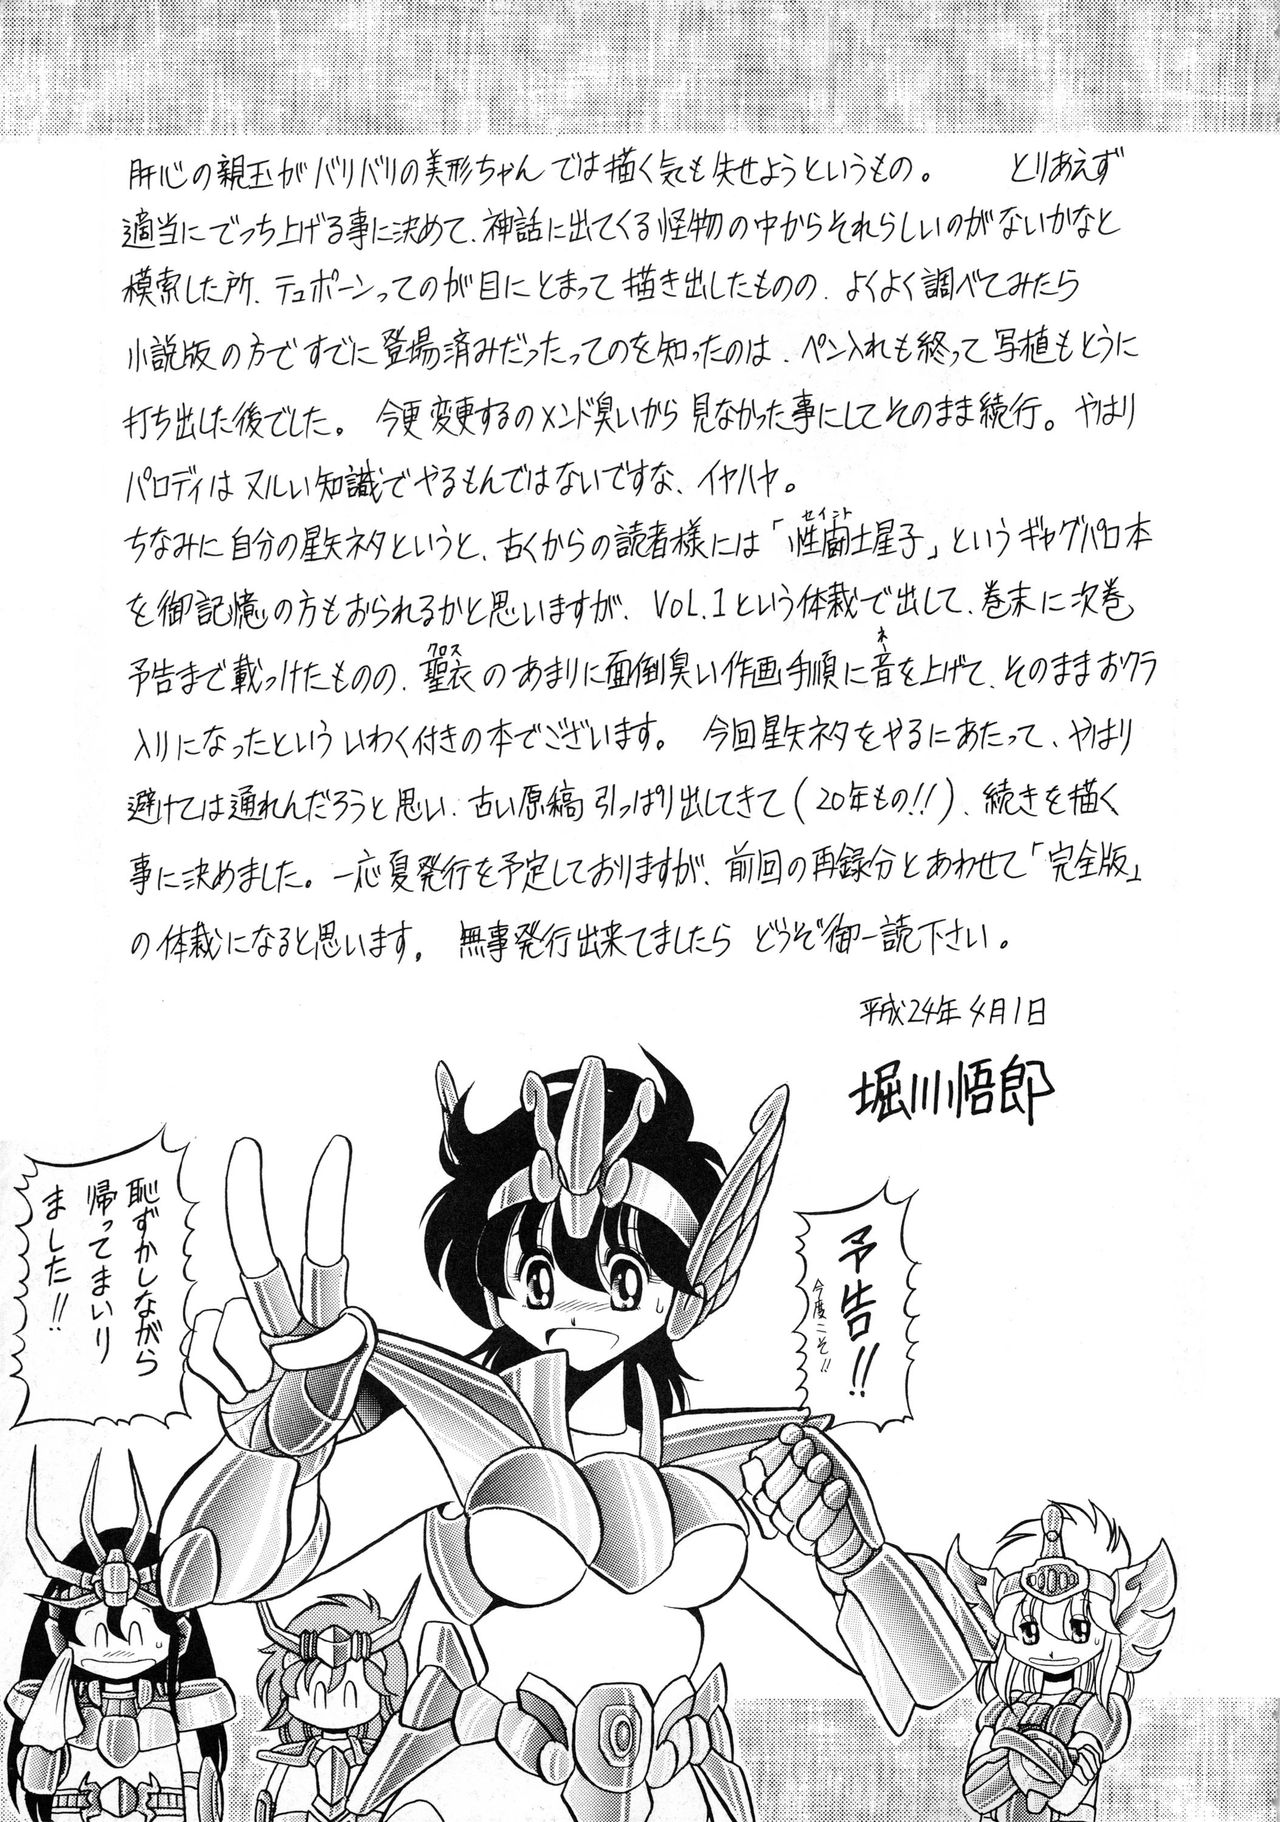 肝心の親玉がバリバリの美形ちゃんでは描く気も失せようというもの。 とりあえず
適当にでっち上げる事に決めて、神話に出てくる怪物の中からそれらしいのがないかなと
模索した所、テュポーンってのが目にとまって描き出したものの、よくよく調べてみたら
小説版の方ですでに登場済みだったってのを知ったのは、ペン入れも終って写植もとうに
打ち出した後でした。 今更変更するのメンド臭いから見なかった事にしてそのまま続行。やはり
パロディはヌルい知識でやるもんではないですな、イヤハヤ。
ちなみに自分の星矢ネタというと、古くからの読者様には「性闘士星子」というギャグパロ本
セイント
を御記憶の方もおられるかと思いますが、VOL.1という体裁で出して、巻末に次巻
予告まで載っけたものの、聖衣のあまりに面倒臭い作画手順に音を上げて、そのままおクラ
クロス
ネ
入りになったといういわく付きの本でございます。 今回星矢ネタをやるにあたって、やはり
避けては通れんだろうと思い、古い原稿引っぱり出してきて(20年もの!!)、続きを描く
事に決めました。一応夏発行を予定しておりますが、前回の再録分とあわせて「完全版」
の体裁になると思います。 無事発行出来てましたらどうぞ御一読下さい。
平成24年4月1日
堀川悟郎
予告!!
今度こそ!!
恥ずかしながら
帰ってまいり
ました!!